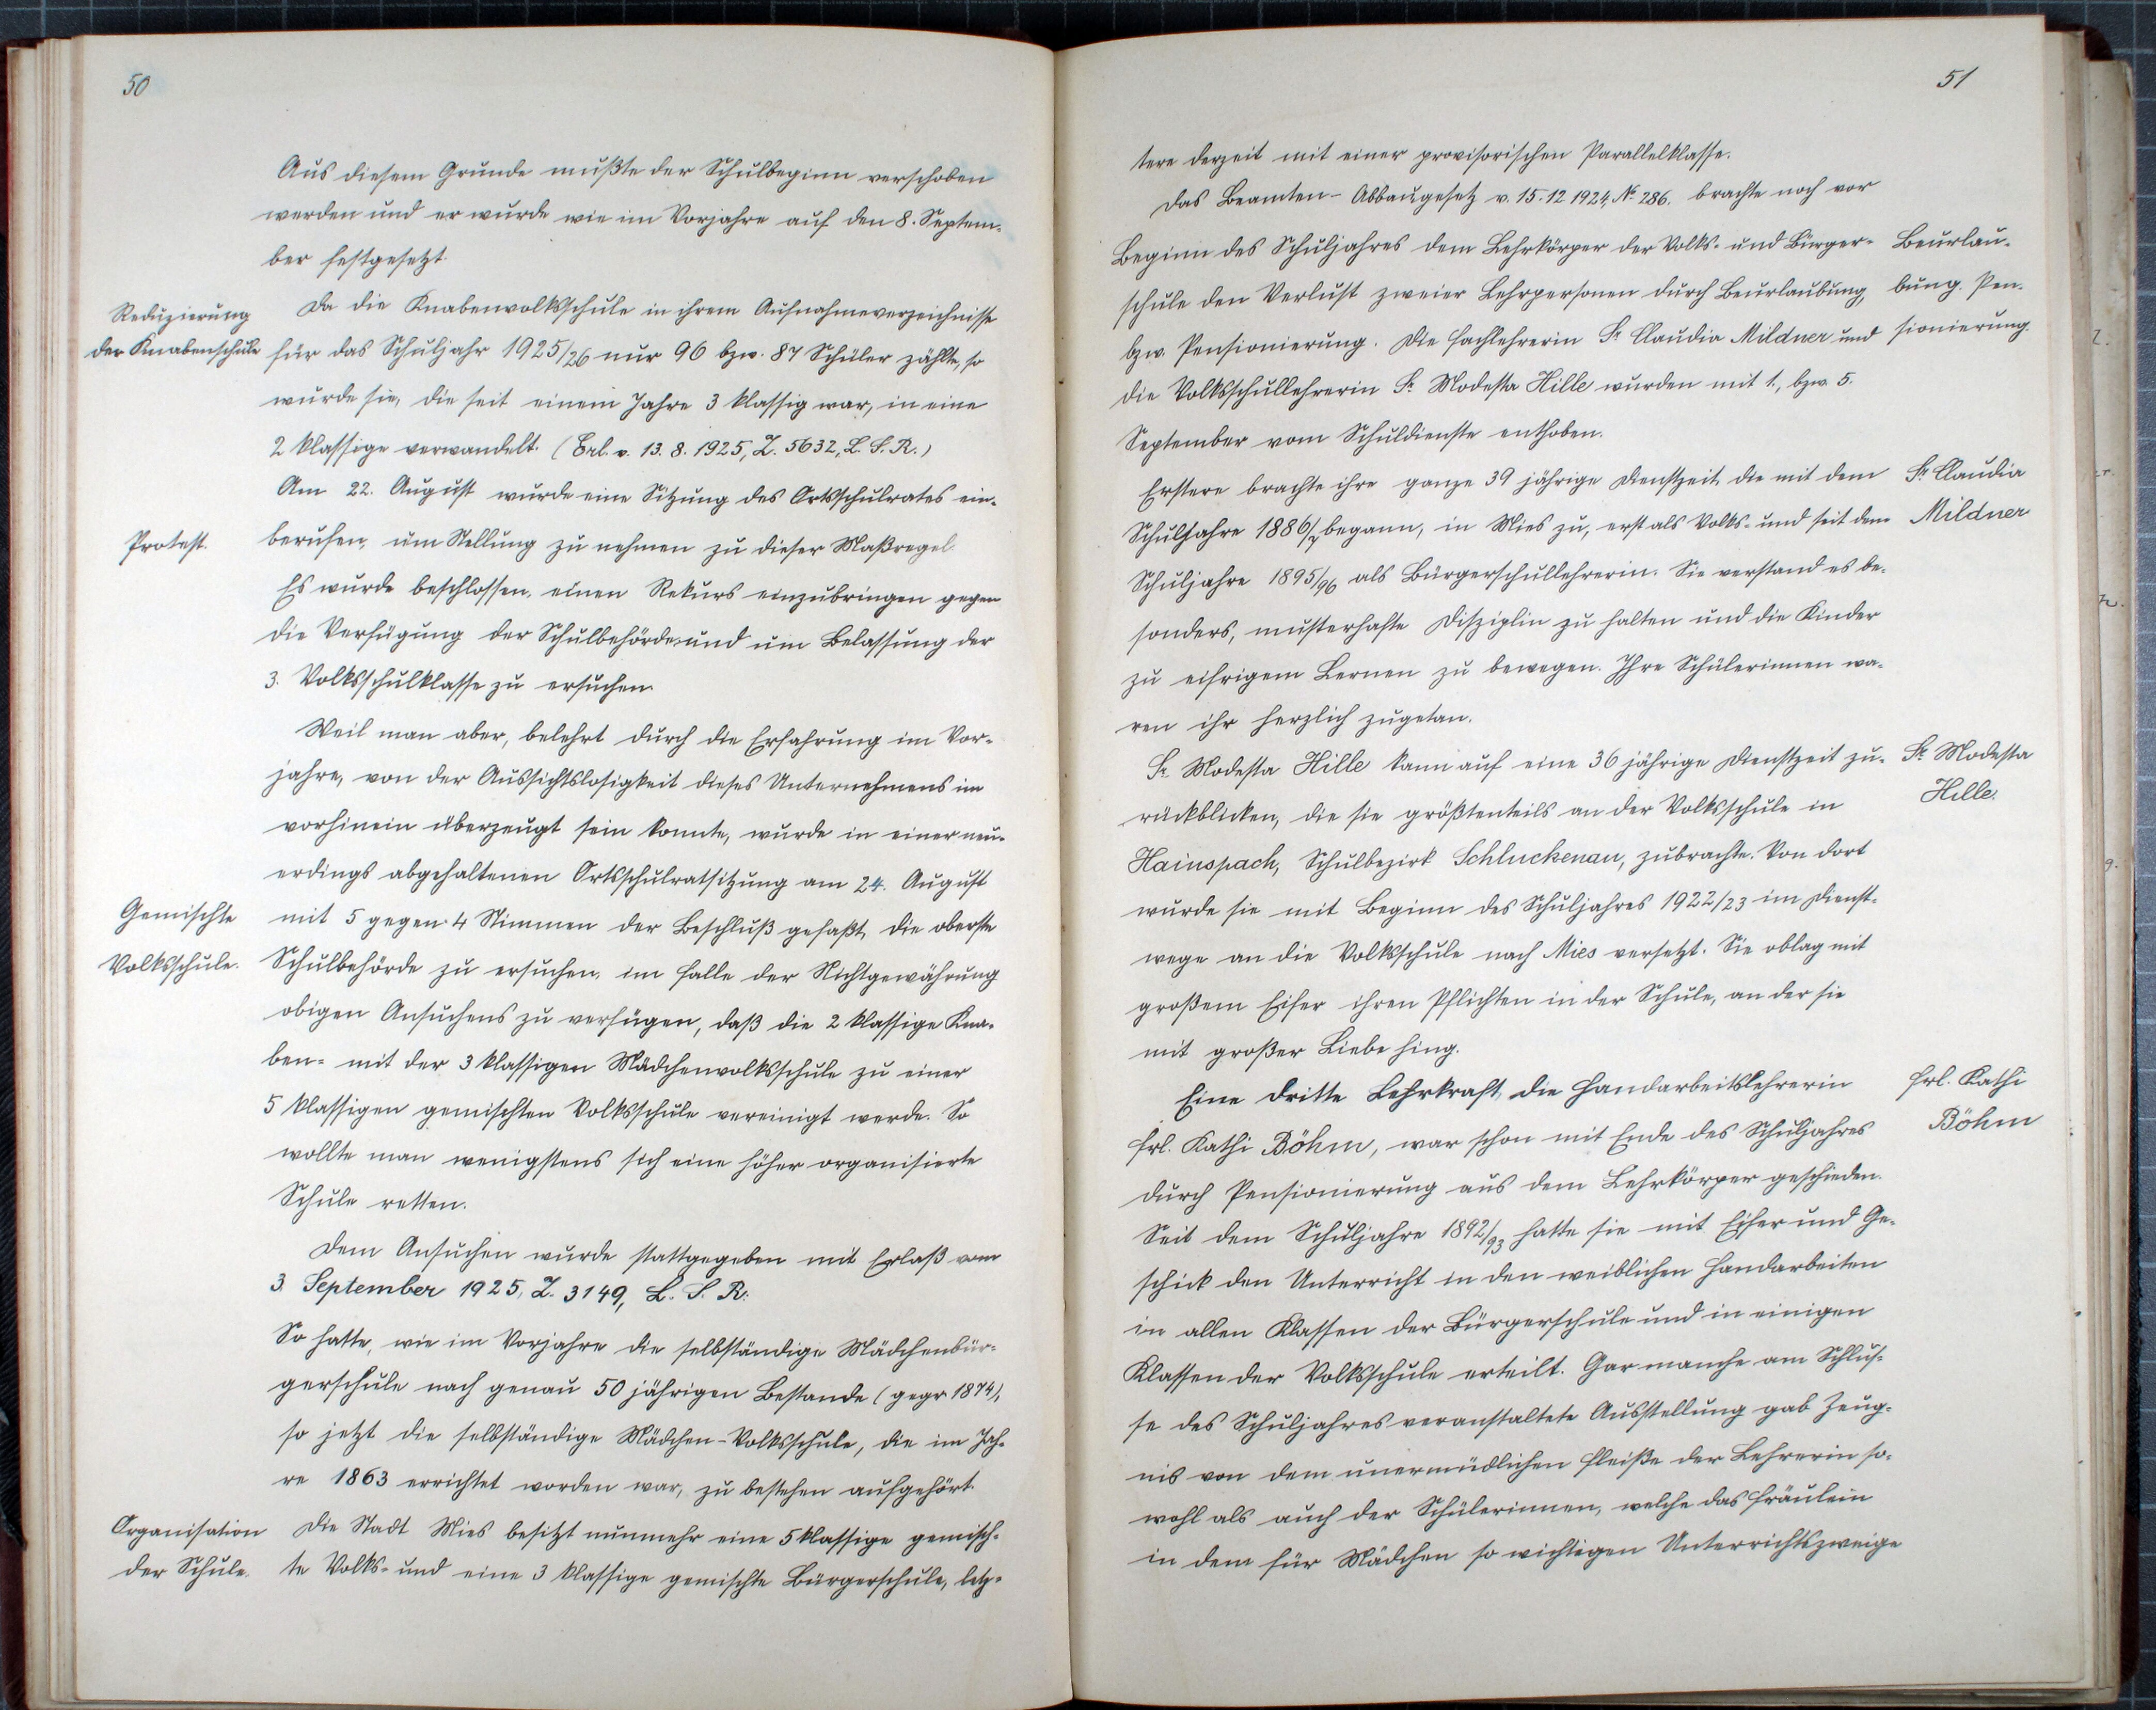 50
Aus diesem Grunde mußte der Schulbeginn verschoben
werden und er wurde wie im Vorjahre auf den 8. Septem-
ber festgesetzt.
Reduzierung
der Knabenschule
Da die Knabenvolksschule in ihrem Aufnahmeverzeichnisse
für das Schuljahr 1925/26 nur 96 bzw. 87 Schüler zählte, so
wurde sie, die seit einem Jahre 3 klassig war, in eine
2 klassige verwandelt. (Erl. v. 13. 8. 1925, Z. 5632, L. S. R.)
Am 22. August wurde eine Sitzung des Ortsschulrates ein-
Protest.
berufen, um Stellung zu nehmen zu dieser Maßregel.
Es wurde beschlossen, einen Rekurs einzubringen gegen
die Verfügung der Schulbehörde und um Belassung der
3. Volksschulklasse zu ersuchen.
Weil man aber, belehrt durch die Erfahrung im Vor-
jahre, von der Aussichtslosigkeit dieses Unternehmens im
vorhinein überzeugt sein konnte, wurde in einer neu-
erdings abgehaltenen Ortsschulratsitzung am 24. August
Gemischte
Volksschule.
mit 5 gegen 4 Stimmen der Beschluß gefaßt, die oberste
Schulbehörde zu ersuchen, im Falle der Nichtgewährung
obigen Ansuchens zu verfügen, daß die 2 klassige Kna-
ben- mit der 3 klassigen Mädchenvolksschule zu einer
5 klassigen gemischten Volksschule vereinigt werde. So
wollte man wenigstens sich eine höher organisierte
Schule retten.
Dem Ansuchen wurde stattgegeben mit Erlaß vom
3. September 1925, Z. 3149, L. S. R.
So hatte, wie im Vorjahre die selbständige Mädchenbür-
gerschule nach genau 50 jährigen Bestande (gegr. 1874),
so jetzt die selbständige Mädchen-Volksschule, die im Jah-
re 1863 errichtet worden war, zu bestehen aufgehört.
Organisation
der Schule.
Die Stadt Mies besitzt nunmehr eine 5 klassige gemisch-
te Volks- und eine 3 klassige gemischte Bürgerschule, letz-
51
tere derzeit mit einer provisorischen Parallelklasse.
Das Beamten-Abbaugesetz v. 15. 12 1924, No 286. brachte noch vor
Beginn des Schuljahres dem Lehrkörper der Volks- und Bürger-
schule den Verlust zweier Lehrpersonen durch Beurlaubung,
bzw. Pensionierung. Die Fachlehrerin Sr. Claudia Mildner und
die Volksschullehrerin Sr. Modesta Hille wurden mit 1., bzw. 5.
September vom Schuldienste enthoben.
Beurlau-
bung. Pen-
sionierung.
Erstere brachte ihre ganze 39 jährige Dienstzeit, die mit dem
Schuljahre 1886/7 begann, in Mies zu, erst als Volks- und seit dem
Schuljahre 1895/96 als Bürgerschullehrerin. Sie verstand es be-
sonders, musterhafte Disziplin zu halten und die Kinder
zu eifrigem Lernen zu bewegen. Ihre Schülerinnen wa-
ren ihr herzlich zugetan.
Sr. Claudia
Mildner
Sr. Modesta Hille kann auf eine 36 jährige Dienstzeit zu-
rückblicken, die sie größtenteils an der Volksschule in
Hainspach, Schulbezirk Schluckenau, zubrachte. Von dort
wurde sie mit Beginn des Schuljahres 1922/23 im Dienst-
wege an die Volksschule nach Mies versetzt. Sie oblag mit
großem Eifer ihren Pflichten in der Schule, an der sie
mit großer Liebe hing.
Sr. Modesta
Hille.
Eine dritte Lehrkraft, die Handarbeitslehrerin
Frl. Kathi Böhm, war schon mit Ende des Schuljahres
durch Pensionierung aus dem Lehrkörper geschieden.
Seit dem Schuljahre 1892/93 hatte sie mit Eifer und Ge-
schick den Unterricht in den weiblichen Handarbeiten
in allen Klassen der Bürgerschule und in einigen
Klassen der Volksschule erteilt. Gar manche am Schlus-
se des Schuljahres veranstaltete Ausstellung gab Zeug-
nis von dem unermüdlichen Fleiße der Lehrerin so-
wohl als auch der Schülerinnen, welche das Fräulein
in dem für Mädchen so wichtigen Unterrichtszweige
Frl. Kathi
Böhm